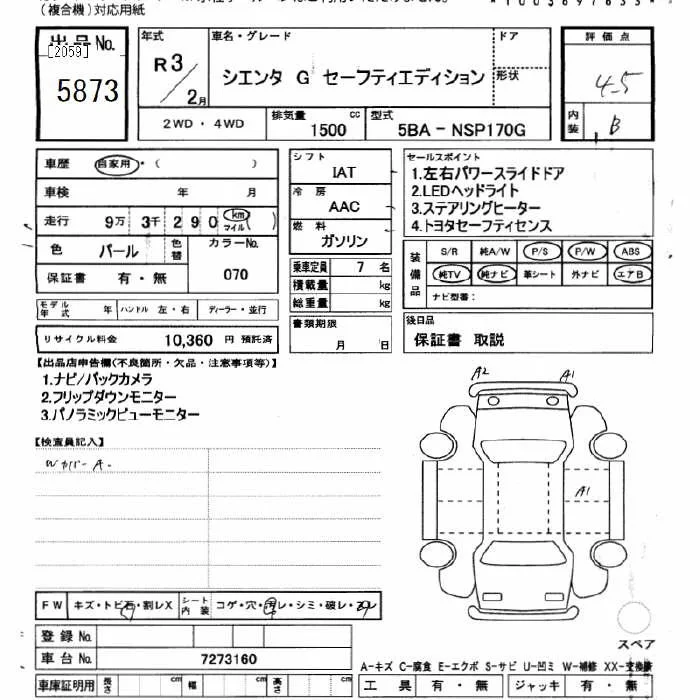 (複合機)対応用紙
出品No.
[2059]
5873
年式
R3
2月
車名・グレード
シエンタ G セーフティエディション
ドア
形状
評価点
4.5
内装
B
2WD・4WD
排気量
1500 cc
型式
5BA-NSP170G
車歴 自家用・( )
車検 年 月
走行 9万 3千 290 km マイル
色 パール 色替 カラーNo.
070
保証書 有・無
シフト
IAT
冷房
AAC
燃料
ガソリン
乗車定員 7 名
積載量 kg
総重量 kg
セールスポイント
1.左右パワースライドドア
2.LEDヘッドライト
3.ステアリングヒーター
4.トヨタセーフティセンス
装備品
S/R 純A/W P/S P/W ABS
純TV 純ナビ 革シート 外ナビ エアB
ナビ型番:
モデル年式 年 ハンドル 左・右 ディーラー・並行
リサイクル料金 10,360 円 預託済
書類期限
月 日
後日品
保証書 取説
【出品店申告欄(不良箇所・欠品・注意事項等)】
1.ナビ/バックカメラ
2.フリップダウンモニター
3.パノラミックビューモニター
【検査員記入】
Wカバー A.
A2
A1
A1
FW キズ・トビ石・割レX シート内装 コゲ・穴・汚レ・シミ・破レ・スレ
登録No.
車台No. 7273160
車庫証明用 長さ cm 幅 cm 高さ cm
スペア
A-キズ C-腐食 E-エクボ S-サビ U-凹ミ W-補修 XX-交換済
工具 有・無 ジャッキ 有・無